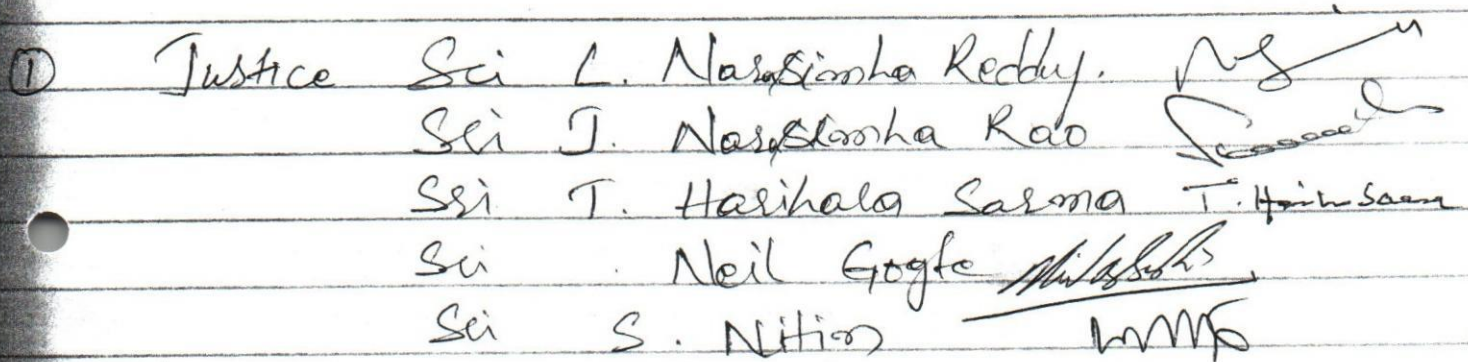 ① Justice Sri L. Narasimha Reddy.
Sri J. Narasimha Rao
Sri T. Harihara Sarma T.
Sri . Neil Gogte
Sri S. Nitin